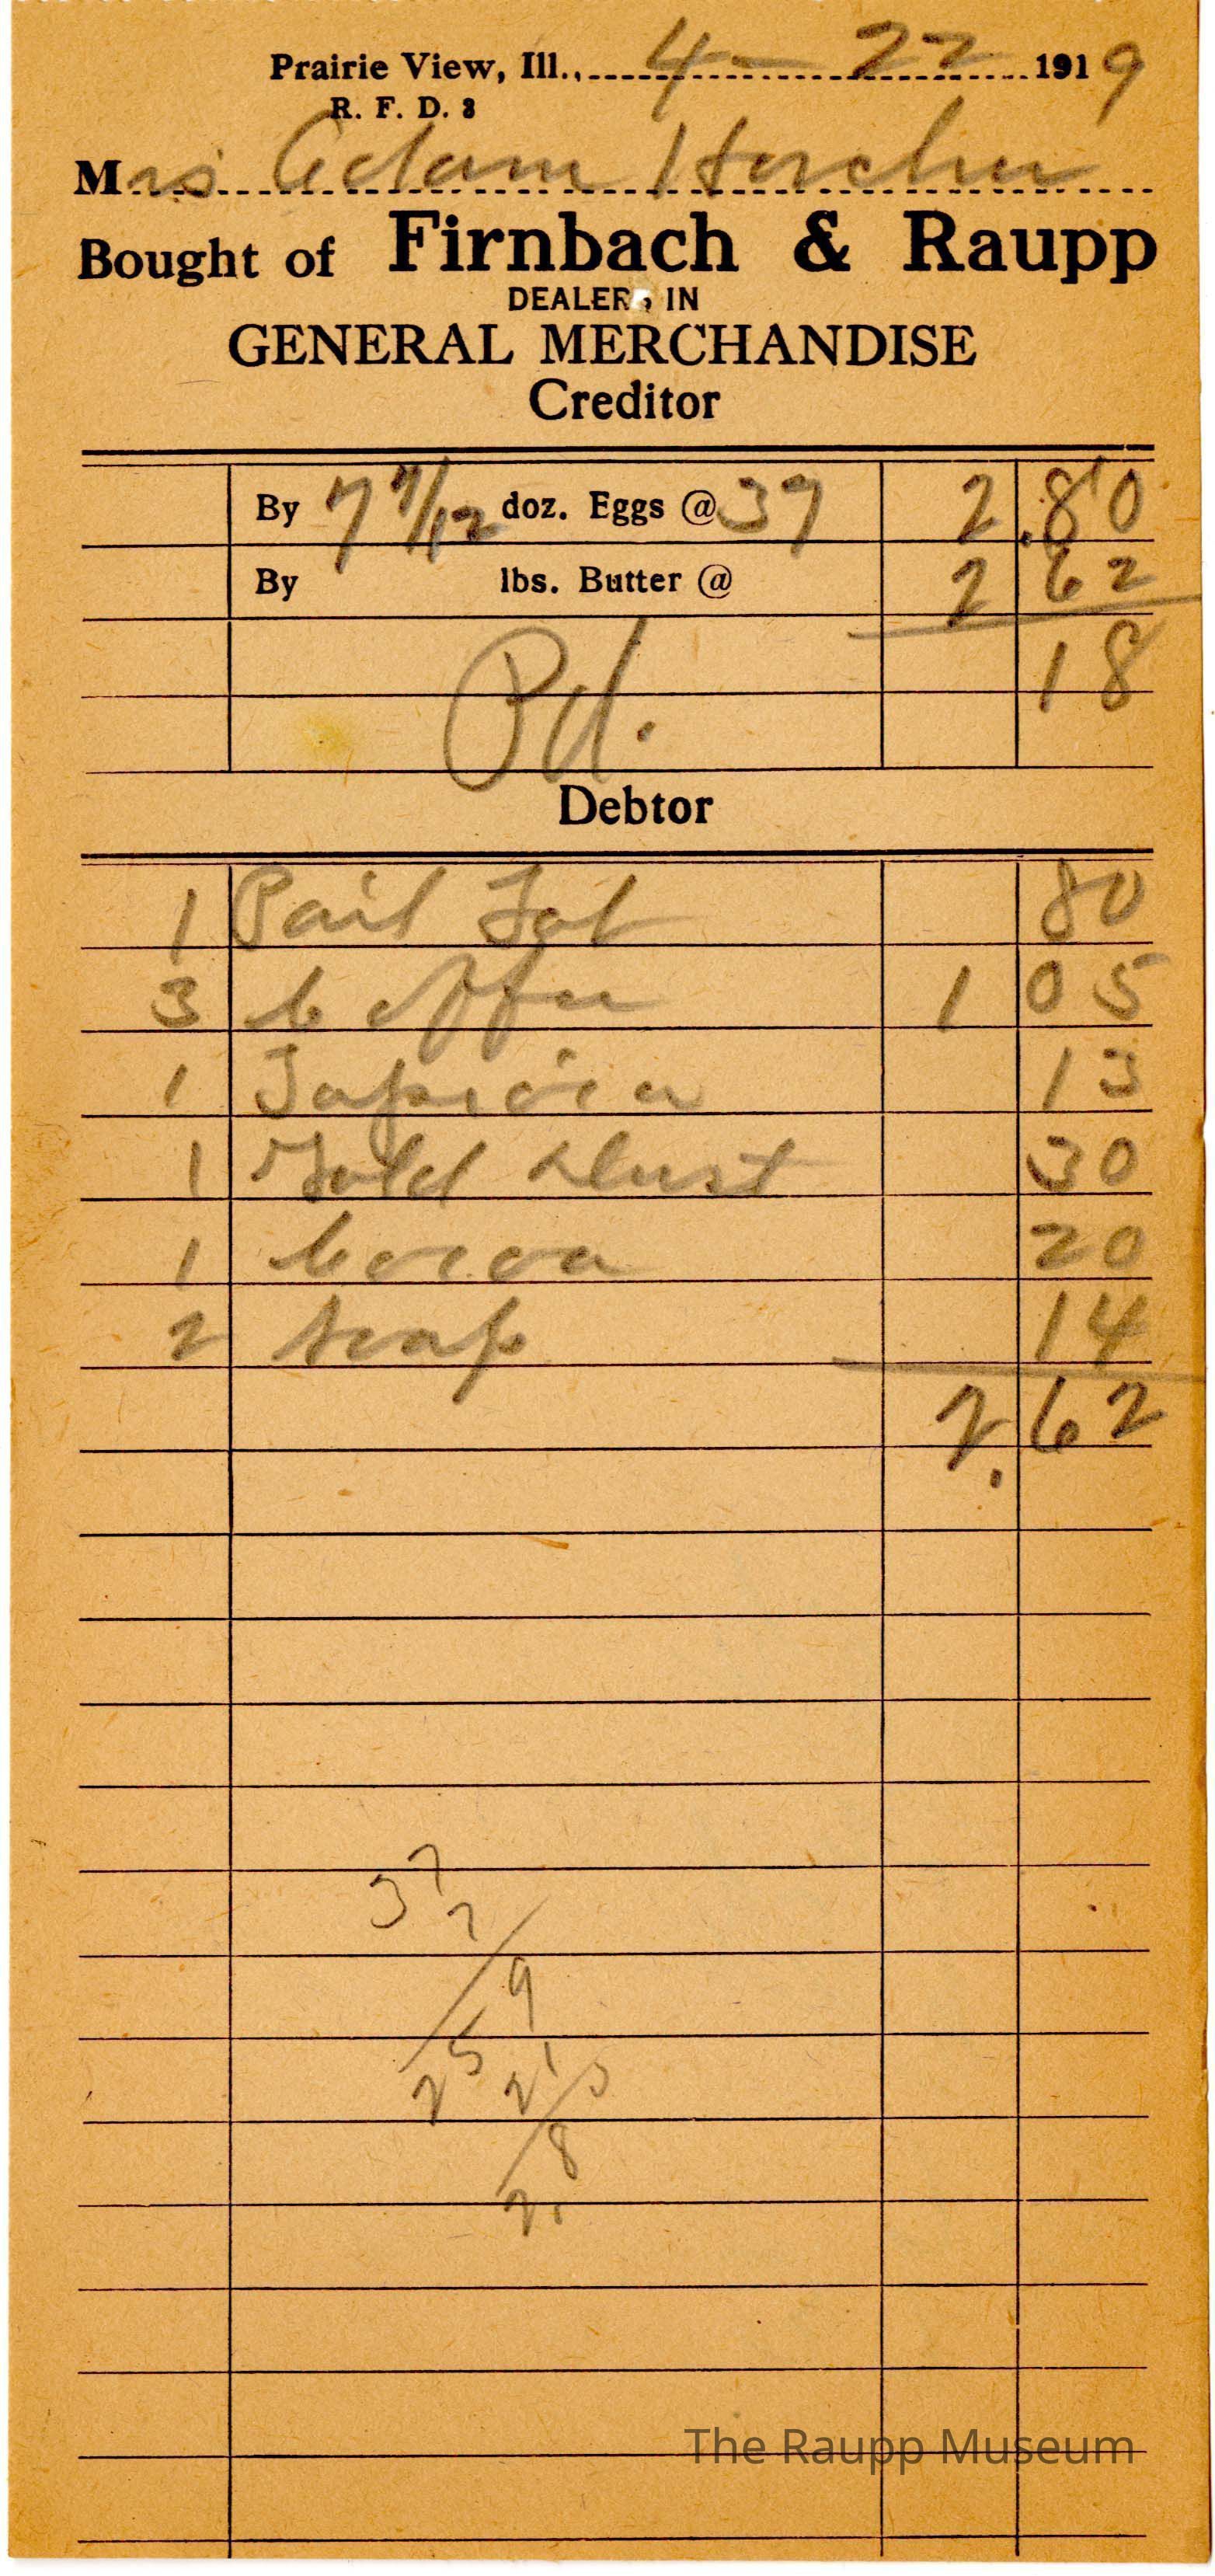 Prairie View, Ill., 4-22 1919
R. F. D. 2
Mrs Adam Horcher
Bought of Firnbach & Raupp
DEALERS IN
GENERAL MERCHANDISE
Creditor
By 7 7/12 doz. Eggs @ 37 2.80
By lbs. Butter @ 2 62
18
Pd.
Debtor
1 Pail Fat 80
3 Coffee 1 05
1 Tapioca 13
1 Gold Dust 30
1 Cocoa 20
2 Soap 14
2.62
37
2
9
25 21
8
2
The Raupp Museum